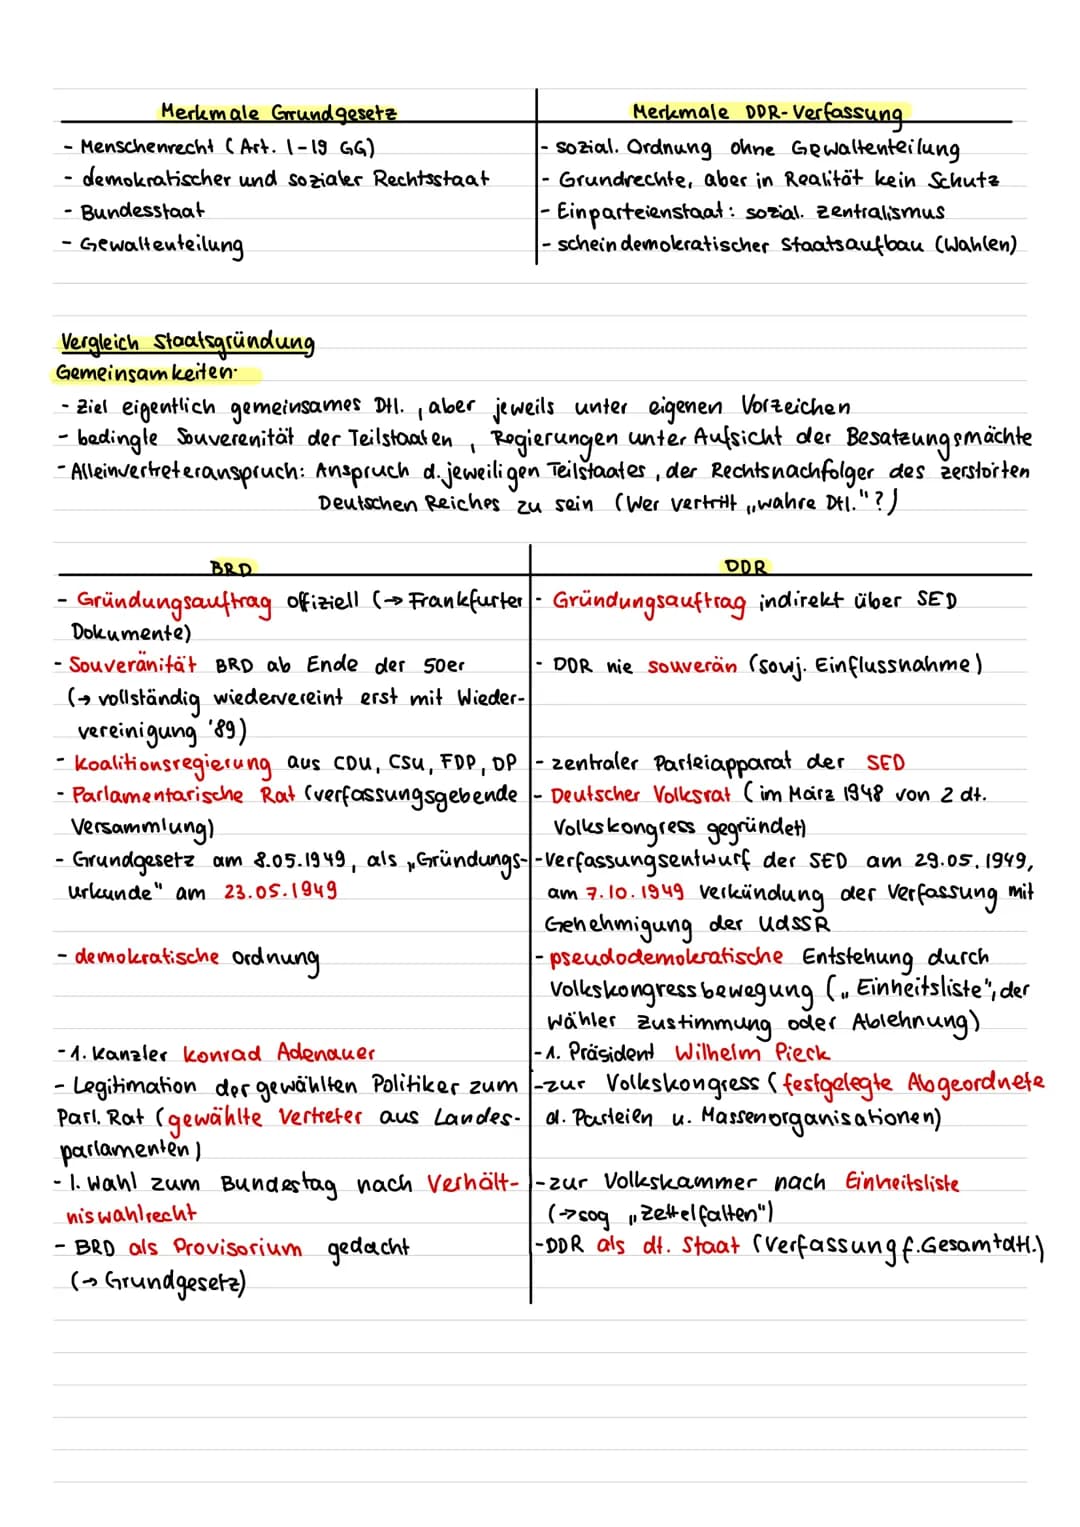 Merkmale Grundgesetz
- Menschenrecht (Art. 1-19 GG)
- demokratischer und sozialer Rechtsstaat
- Bundesstaat
- Gewaltenteilung
Merkmale DDR-Verfassung
- sozial. Ordnung ohne Gewaltenteilung
- Grundrechte, aber in Realität kein Schutz
- Einparteienstaat: sozial. Zentralismus
- scheindemokratischer Staatsaufbau (Wahlen)
Vergleich Staatsgründung
Gemeinsamkeiten:
- Ziel eigentlich gemeinsames Dtl., aber jeweils unter eigenen Vorzeichen
- bedingte Souverenität der Teilstaaten, Regierungen unter Aufsicht der Besatzungsmächte
- Alleinvertreteranspruch: Anspruch d. jeweiligen Teilstaates, der Rechtsnachfolger des zerstörten
Deutschen Reiches zu sein (Wer vertritt „wahre Dtl."?)
BRD
- Gründungsauftrag offiziell (→ Frankfurter
Dokumente)
- Souveränität BRD ab Ende der 50er
(→ vollständig wiedervereint erst mit Wieder-
vereinigung '89)
- Koalitionsregierung aus CDU, CSU, FDP, DP
- Parlamentarische Rat (verfassungsgebende
Versammlung)
- Grundgesetz am 8.05.1949, als „Gründungs-
urkunde" am 23.05.1949
- demokratische Ordnung
- 1. Kanzler Konrad Adenauer
- Legitimation der gewählten Politiker zum
Parl. Rat (gewählte Vertreter aus Landes-
parlamenten)
- 1. Wahl zum Bundestag nach Verhält-
niswahlrecht
- BRD als Provisorium gedacht
(→ Grundgesetz)
DDR
- Gründungsauftrag indirekt über SED
- DDR nie souverän (sowj. Einflussnahme)
- zentraler Parteiapparat der SED
- Deutscher Volksrat (im März 1948 von 2 dt.
Volkskongress gegründet)
- Verfassungsentwurf der SED am 29.05.1949,
am 7.10.1949 Verkündung der Verfassung mit
Genehmigung der UdSSR
- pseudodemokratische Entstehung durch
Volkskongressbewegung („Einheitsliste", der
Wähler Zustimmung oder Ablehnung)
- 1. Präsident Wilhelm Pieck
- zur Volkskongress (festgelegte Abgeordnete
d. Parteien u. Massenorganisationen)
- zur Volkskammer nach Einheitsliste
(→ sog „Zettelfalten")
- DDR als dt. Staat (Verfassung f. Gesamtdtl.)